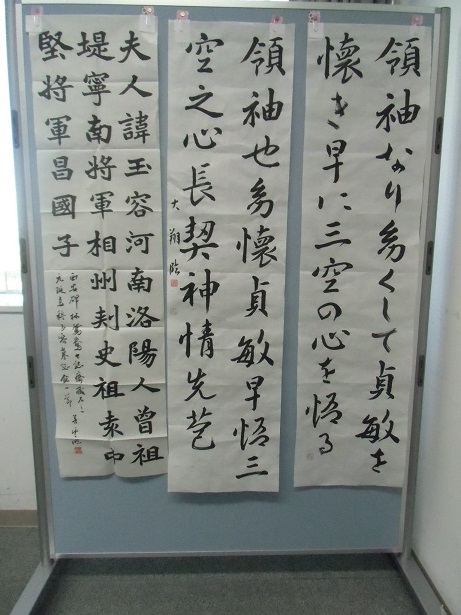 領袖なり幼くして貞敏を
懐き早に三空の心を悟る
領袖也幼懷貞敏早悟三
空之心長契神情先苞
大翔臨
夫人諱玉容河南洛陽人曾祖
堤寧南將軍相州刾史祖袁中
堅將軍昌國子